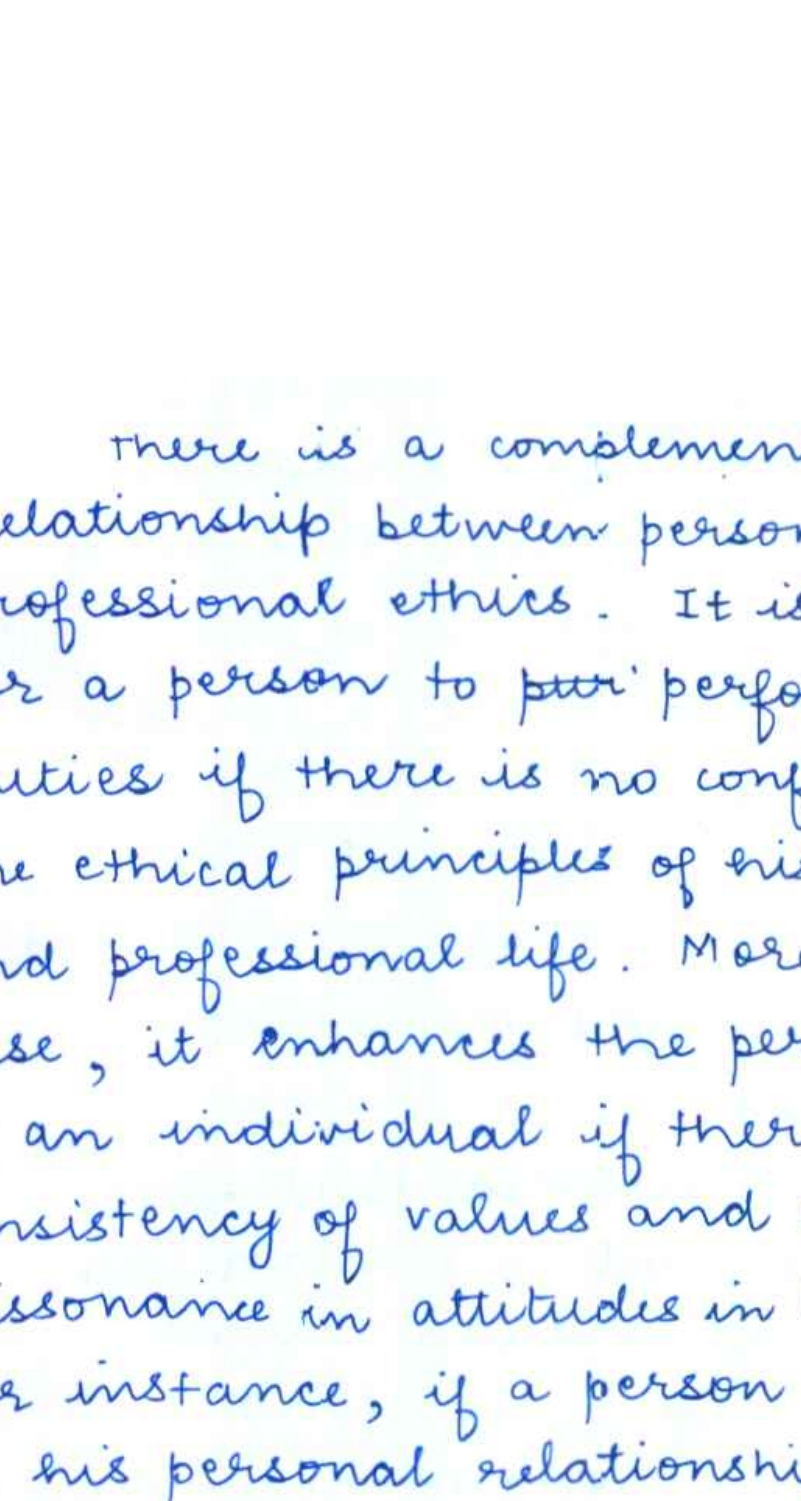 There is a complemen
elationship between person
rofessional ethics. It is
r a person to pur perfo
uties if there is no conf
he ethical principles of his
nd professional life. More
se, it enhances the per
an individual if ther
nsistency of values and
issonance in attitudes in
r instance, if a person
his personal relationshi